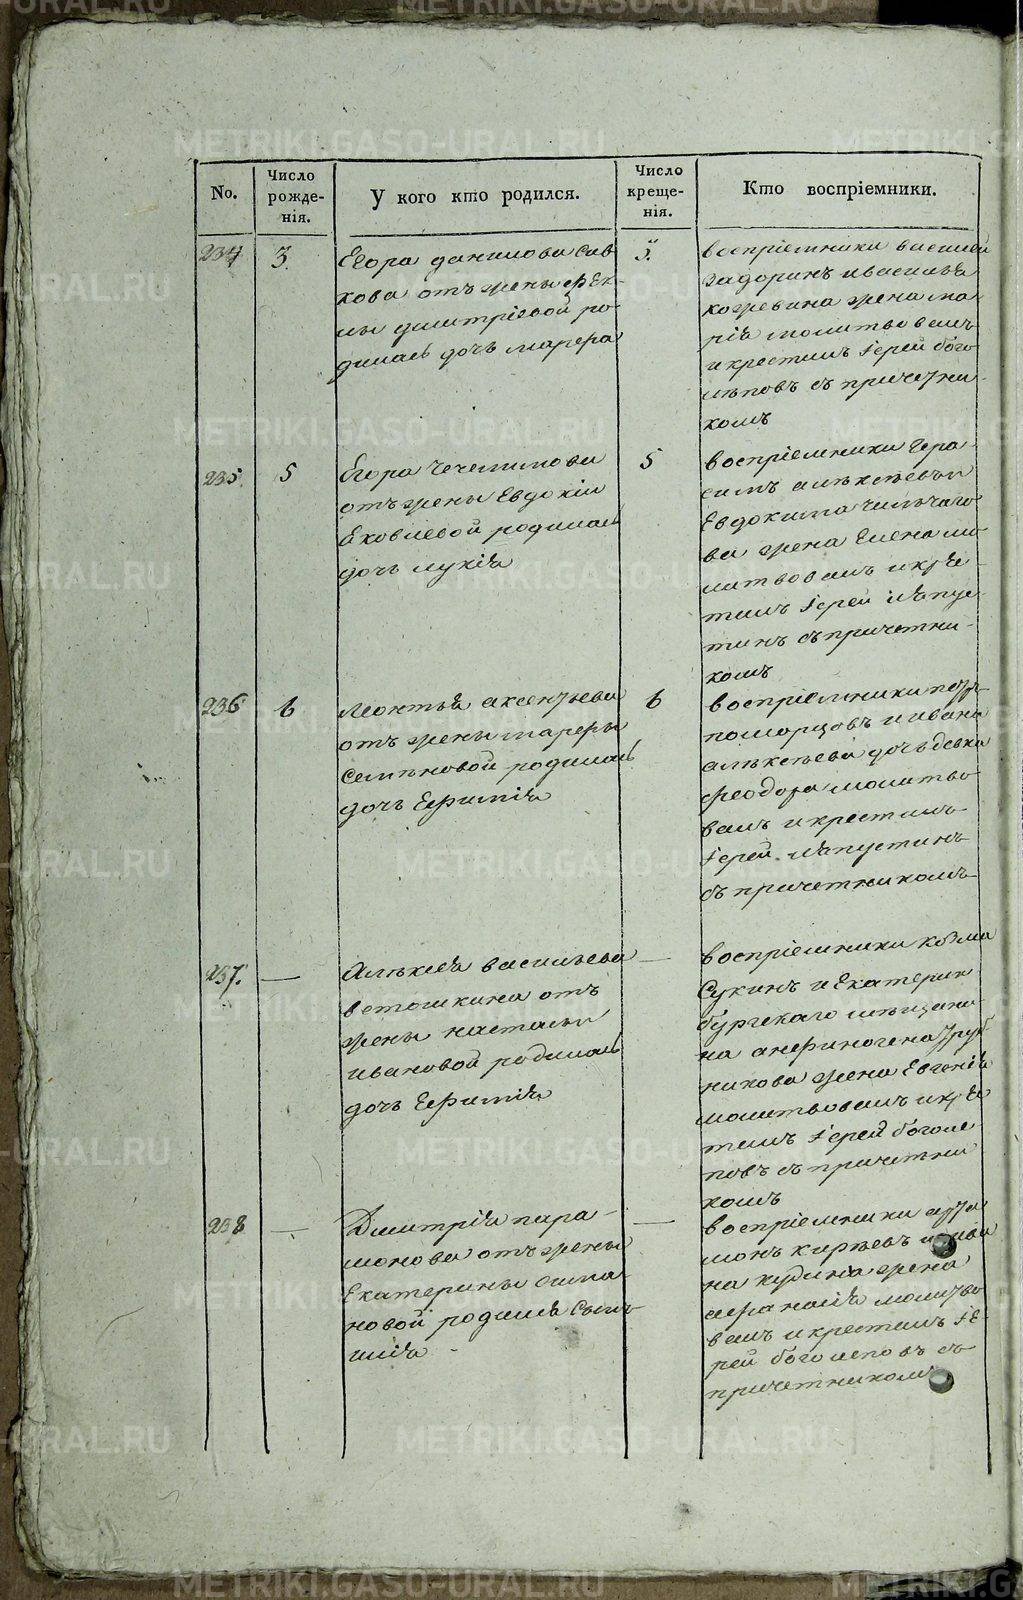 No.
Число рожде-нія.
У кого кто родился.
Число креще-нія.
Кто воспріемники.
234
3.
Егора данилова сав
кова отъ жены фек-
лы дмитріевой ро-
дилась дочь марфа
5.
воспріемники василей
задоринъ и василья
кожевина жена ма-
рія молитвовалъ
и крестилъ Іерей бого
лѣповъ съ причетни
комъ
235.
5
Егора Чечулинова
отъ жены Евдокіи
Яковлевой родилась
дочь лукія
5
воспріемники Гера
симъ алѣксѣевъ и
Евдокима
ва жена Елена мо
литвовалъ и кре
тилъ Іерей лапус
тинъ съ причетни-
комъ
236
6
Леонтья аксентьева
отъ жены марфы
семѣновой родилась
дочь Ефимія
6
воспріемники петръ
поморцовъ и ивана
алѣксѣева дочь девка
феодора молитво
валъ и крестилъ
Іерей лапустинъ
съ причетникомъ
237.
—
Алѣксѣя васильева
ветошкина отъ
жены настасьи
ивановой родилась
дочь Ефимія
—
воспріемники козма
Сукинъ и Екатерин
бургскаго мѣщани
на анфиногена труб
никова жена Евгенія
молитвовалъ и кре
тилъ Іерей боголе
повъ съ причетни
комъ
238
—
Дмитрія пара-
монова отъ жены
Екатерины
новой родился сынъ
илія
—
воспріемники арта
монъ кирѣевъ и
на кудина жена
афанасія молитво
валъ и крестилъ Іе-
рей боголеповъ съ
причетникомъ
METRIKI.GASO-URAL.RU